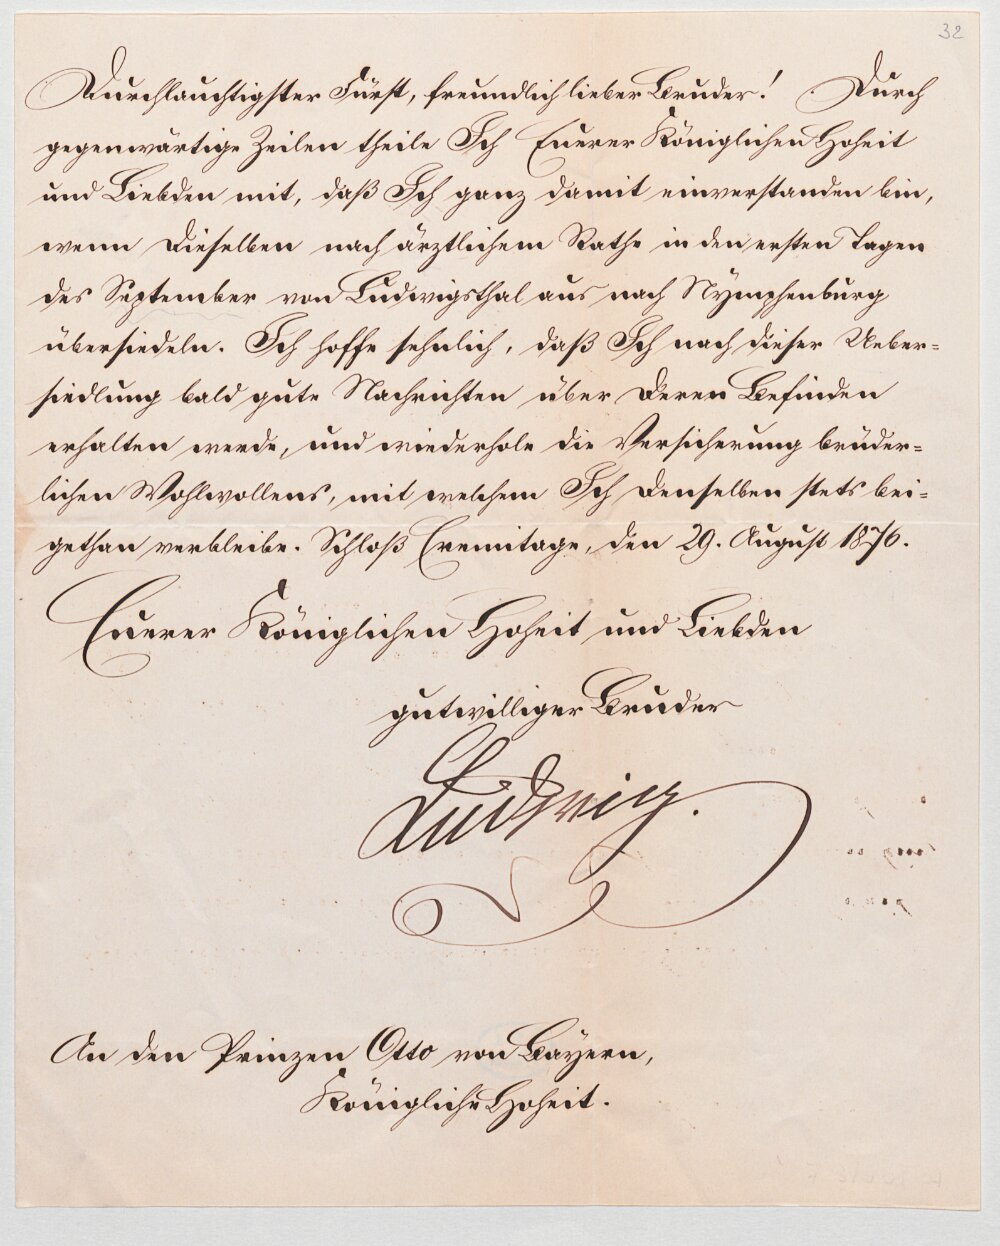 32
Durchlauchtigster Fürst, freundlich lieber Bruder! Durch
gegenwärtige Zeilen theile Ich Euerer Königlichen Hoheit
und Liebden mit, daß Ich ganz damit einverstanden bin,
wenn Dieselben nach ärztlichem Rathe in den ersten Tagen
des September von Ludwigsthal aus nach Nymphenburg
übersiedeln. Ich hoffe sehnlich, daß Ich nach dieser Ueber-
siedlung bald gute Nachrichten über Deren Befinden
erhalten werde, und wiederhole die Versicherung brüder-
lichen Wohlwollens, mit welchem Ich Denselben stets bei-
gethan verbleibe. Schloß Eremitage, den 29. August 1876.
Euerer Königlichen Hoheit und Liebden
gutwilliger Bruder
Ludwig.
An den Prinzen Otto von Bayern,
Königliche Hoheit.